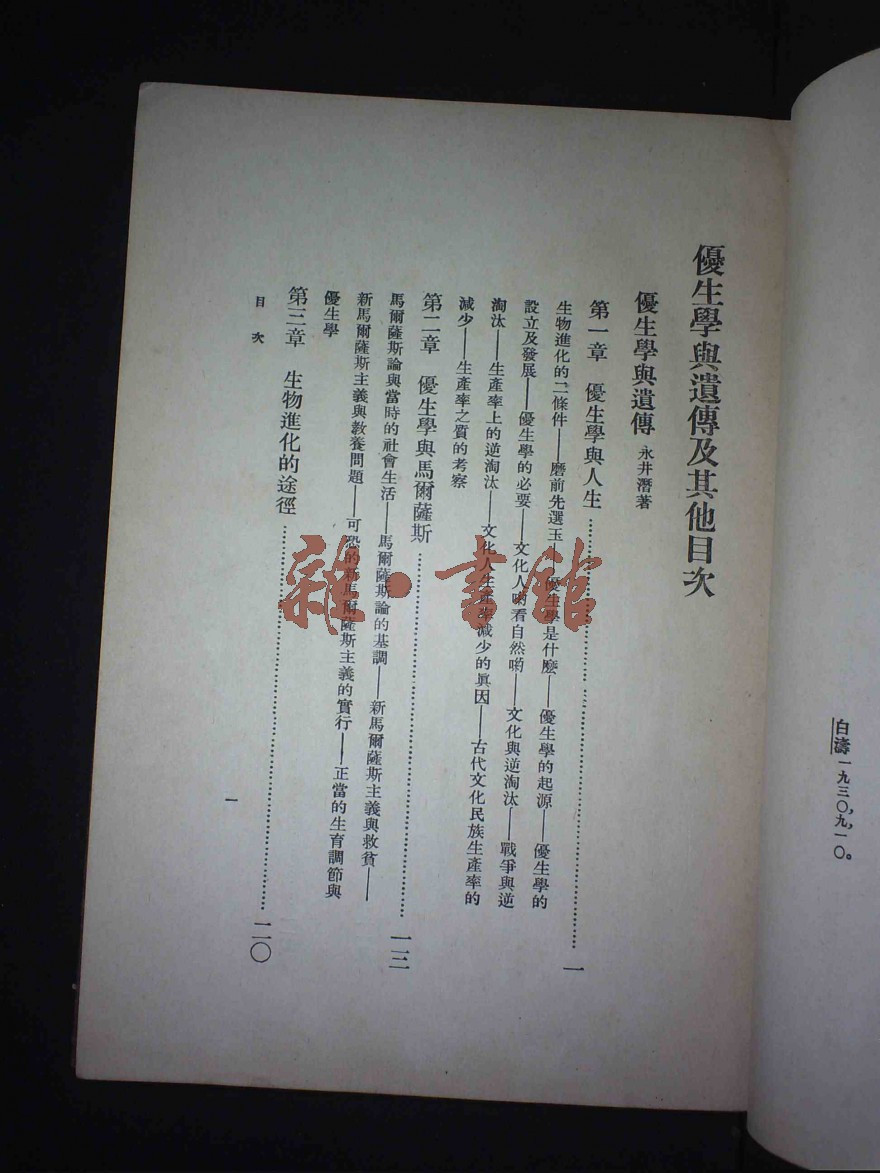 白濤一九三〇，九，一〇。
優生學與遺傳及其他目次
優生學與遺傳 永井潛著
第一章 優生學與人生……一
生物進化的二條件——磨前先選玉——優生學是什麼——優生學的起源——優生學的
設立及發展——優生學的必要——文化人喲看自然喲——文化與逆淘汰——戰爭與逆
淘汰——生產率上的逆淘汰——文化人生產率減少的眞因——古代文化民族生產率的
減少——生產率之質的考察
第二章 優生學與馬爾薩斯……一三
馬爾薩斯論與當時的社會生活——馬爾薩斯論的基調——新馬爾薩斯主義與救貧——
新馬爾薩斯主義與敎養問題——可恐的新馬爾薩斯主義的實行——正當的生育調節與
優生學
第三章 生物進化的途徑……二〇
目次
一
雜·書館